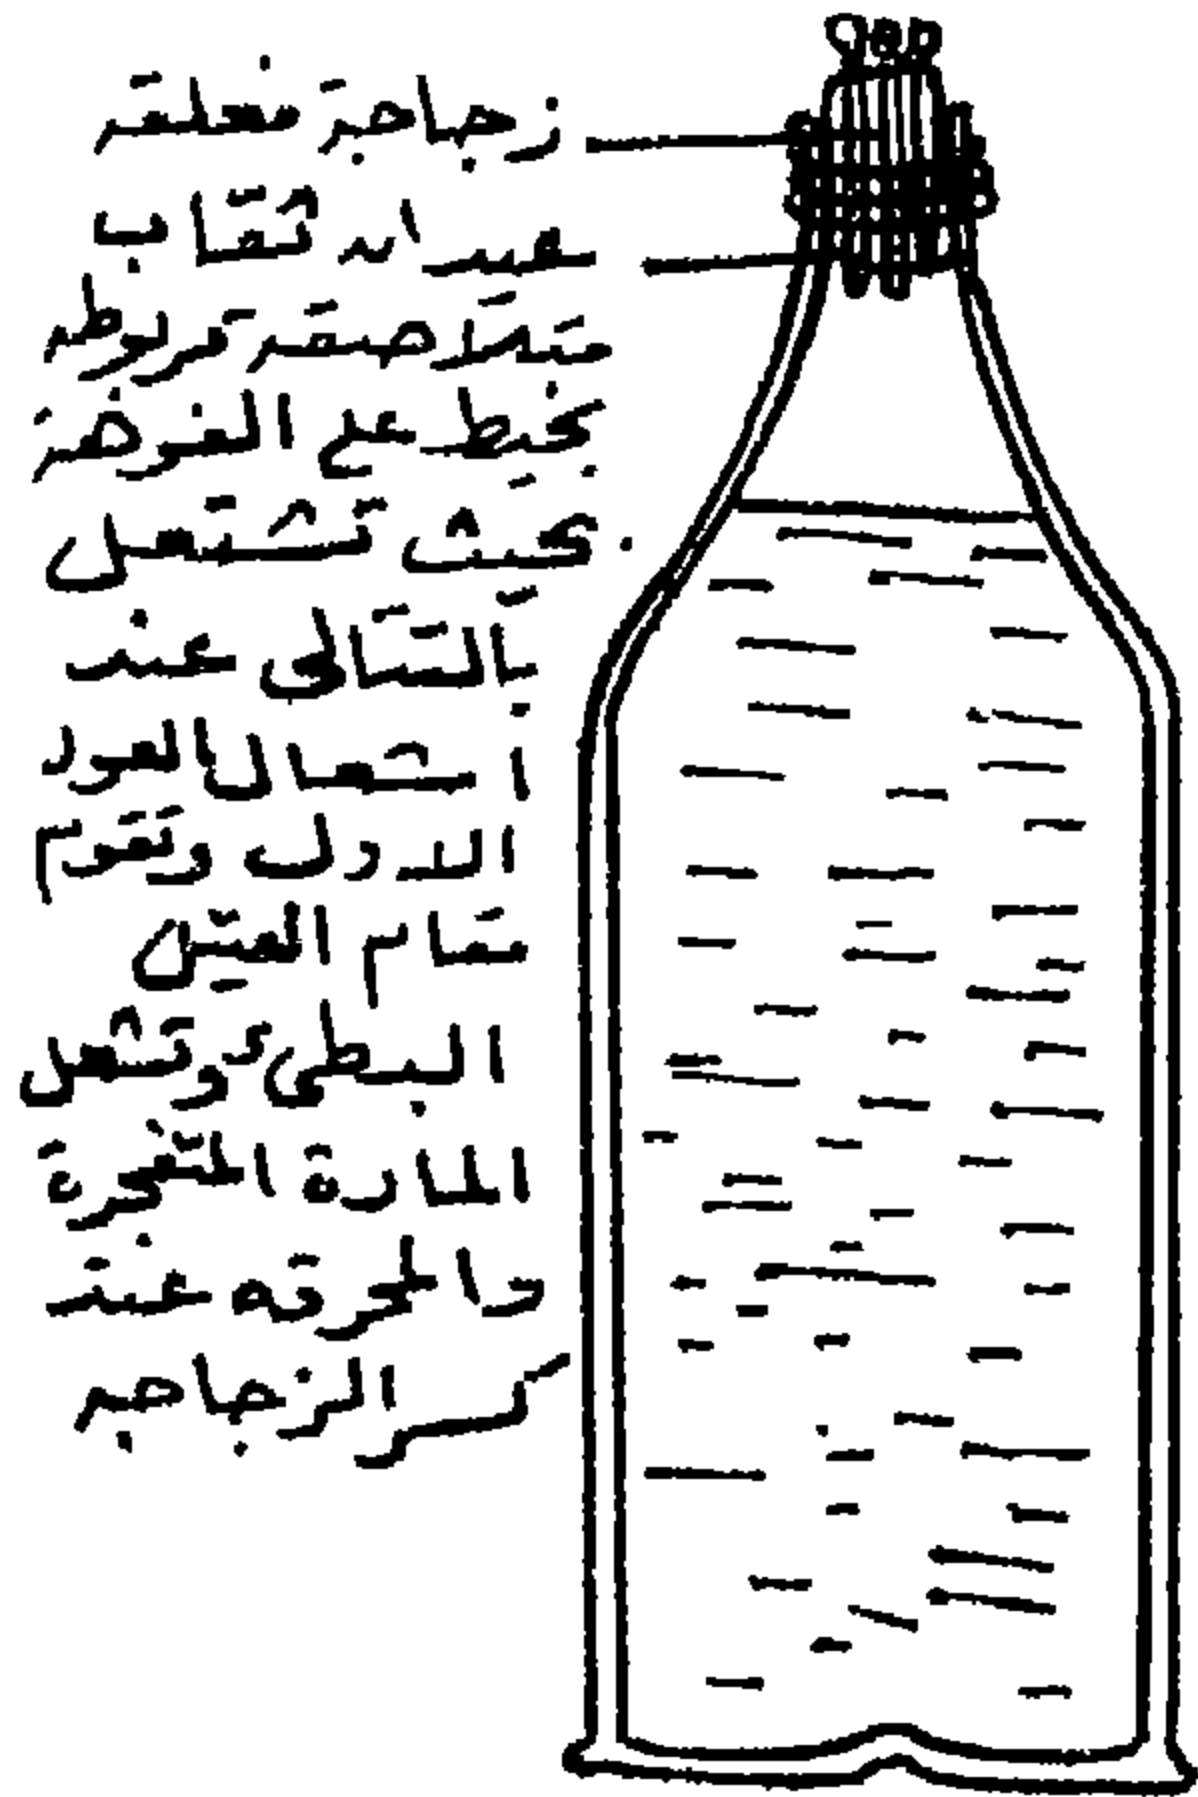 زجاجة مغلقه
عيدان ثقاب
متلاصقه مربوطه
بخيط على الفوهة
بحيث تشتعل
بالتتالى عند
اشتعال العود
الاول وتقوم
مقام الفتيل
البطىء وتشعل
المادة المتفجرة
والحرقه عند
كسر الزجاجه